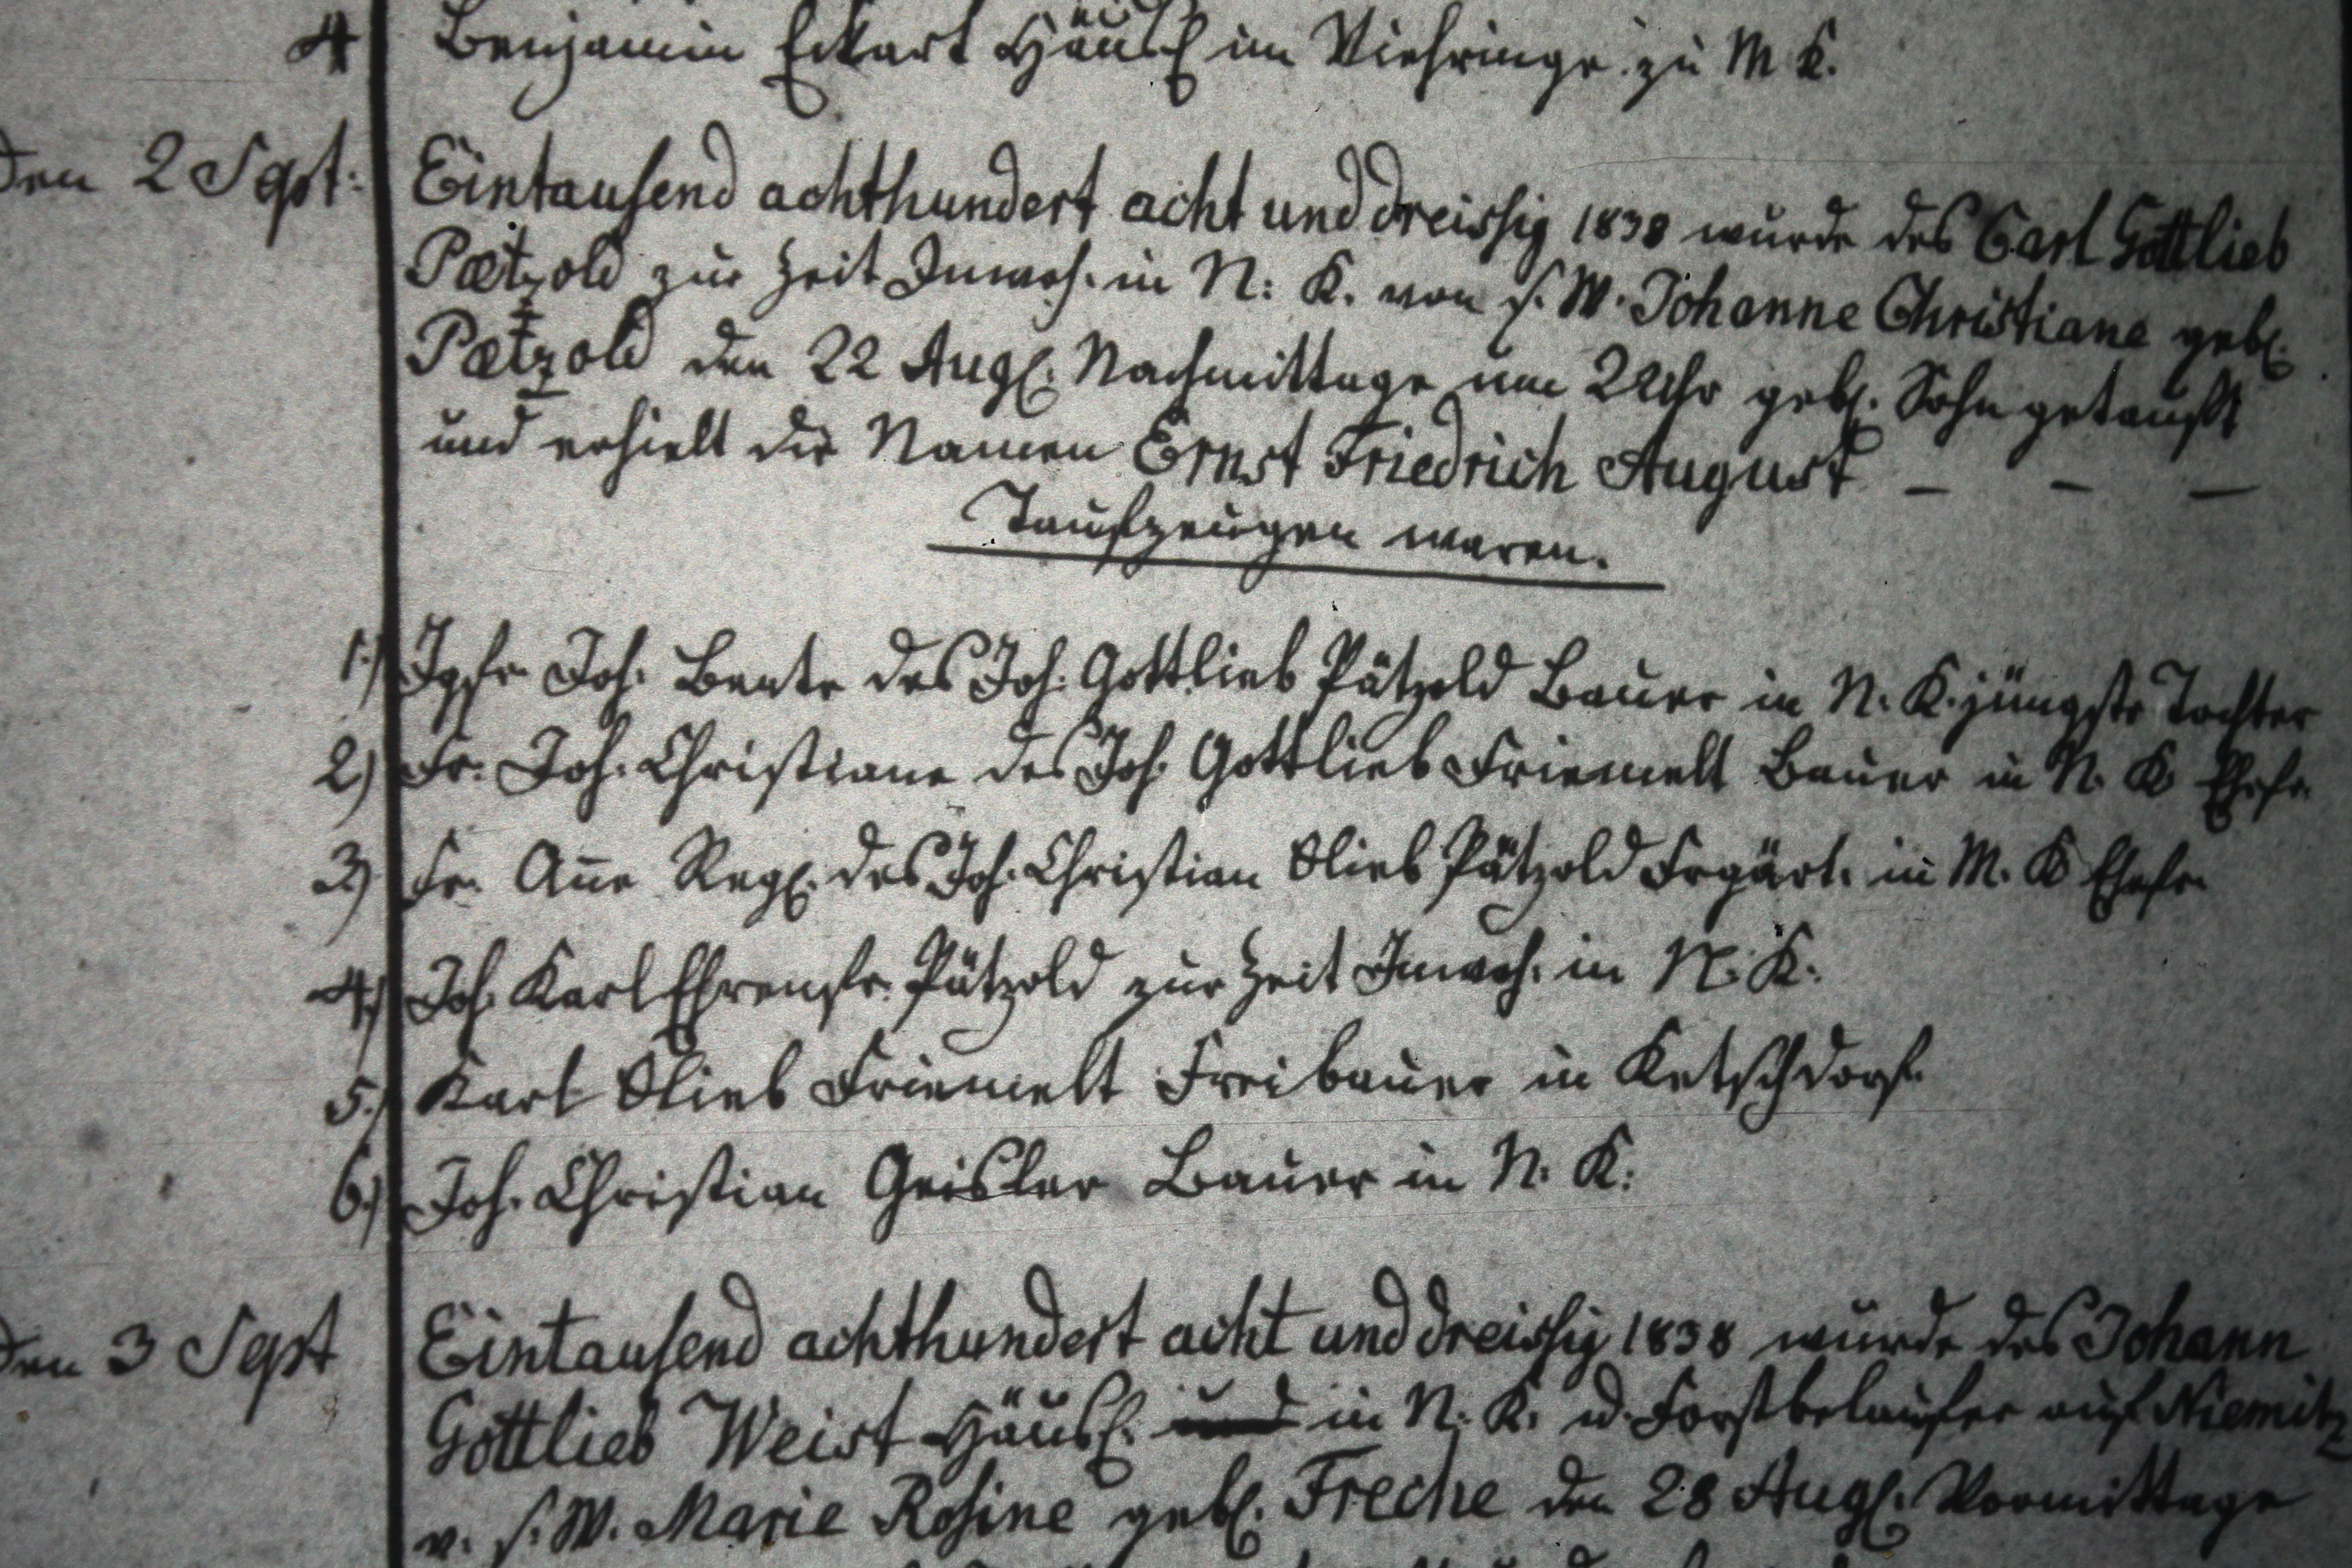 4 Benjamin Eckart Häusl. im Viehringe zu M K.
Den 2 Sept: Eintausend achthundert acht und dreissig 1838 wurde des Carl Gottlieb
Pætzold zur Zeit Inwoh. in N: K. von s. W. Johanne Christiane geb.
Pætzold den 22 Aug. Nachmittage um 2 Uhr geb. Sohn getauft
und erhielt die Namen Ernst Friedrich August – – –
Taufzeugen waren.
1.) Jgfr. Joh. Beate des Joh. Gottlieb Pätzold Bauer in N. K. jüngste Tochter
2) Fr. Joh. Christiane des Joh. Gottlieb Friemelt Bauer in N. K Ehefr.
3) Fr. Añe Reg. des Joh. Christian Glieb Pätzold Frgärt. in M. K Ehefr.
4.) Joh. Karl Ehrenfr. Pätzold zur Zeit Inwoh. in N. K.
5.) Karl Glieb Friemelt Freibauer in Ketschdorf.
6.) Joh. Christian Geisler Bauer in N. K:
Den 3 Sept Eintausend achthundert acht und dreissig 1838 wurde des Johann
Gottlieb Weist Häusl. und in N. K. u. Forstbelaufer auf Niemitz
v. s. W. Marie Rosine geb. Freche den 28 Aug. Vormittage